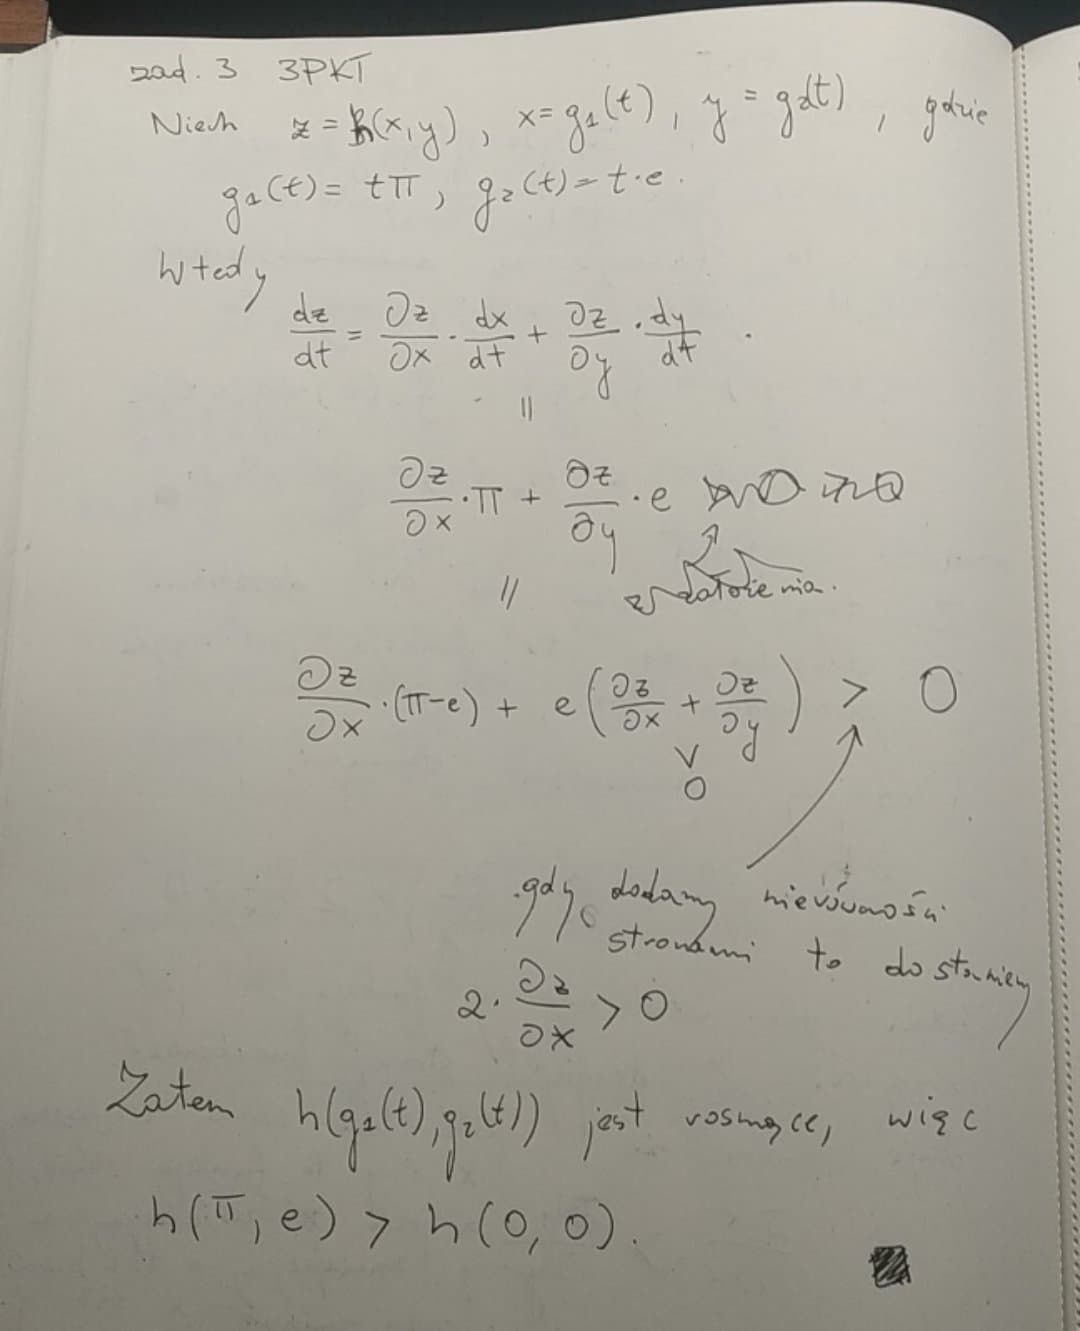 zad. 3 3PKT
Niech z = h(x,y), x = g₁(t), y = g₂(t), gdzie
g₁(t) = tπ, g₂(t) = t·e.
Wtedy
dz/dt = ∂z/∂x · dx/dt + ∂z/∂y · dy/dt.
||
∂z/∂x · π + ∂z/∂y · e
|| z założenia.
∂z/∂x · (π-e) + e(∂z/∂x + ∂z/∂y) > 0
∨
0
gdy dodamy nierówności
stronami to dostaniemy
2 · ∂z/∂x > 0
Zatem h(g₁(t), g₂(t)) jest rosnące, więc
h(π, e) > h(0, 0).